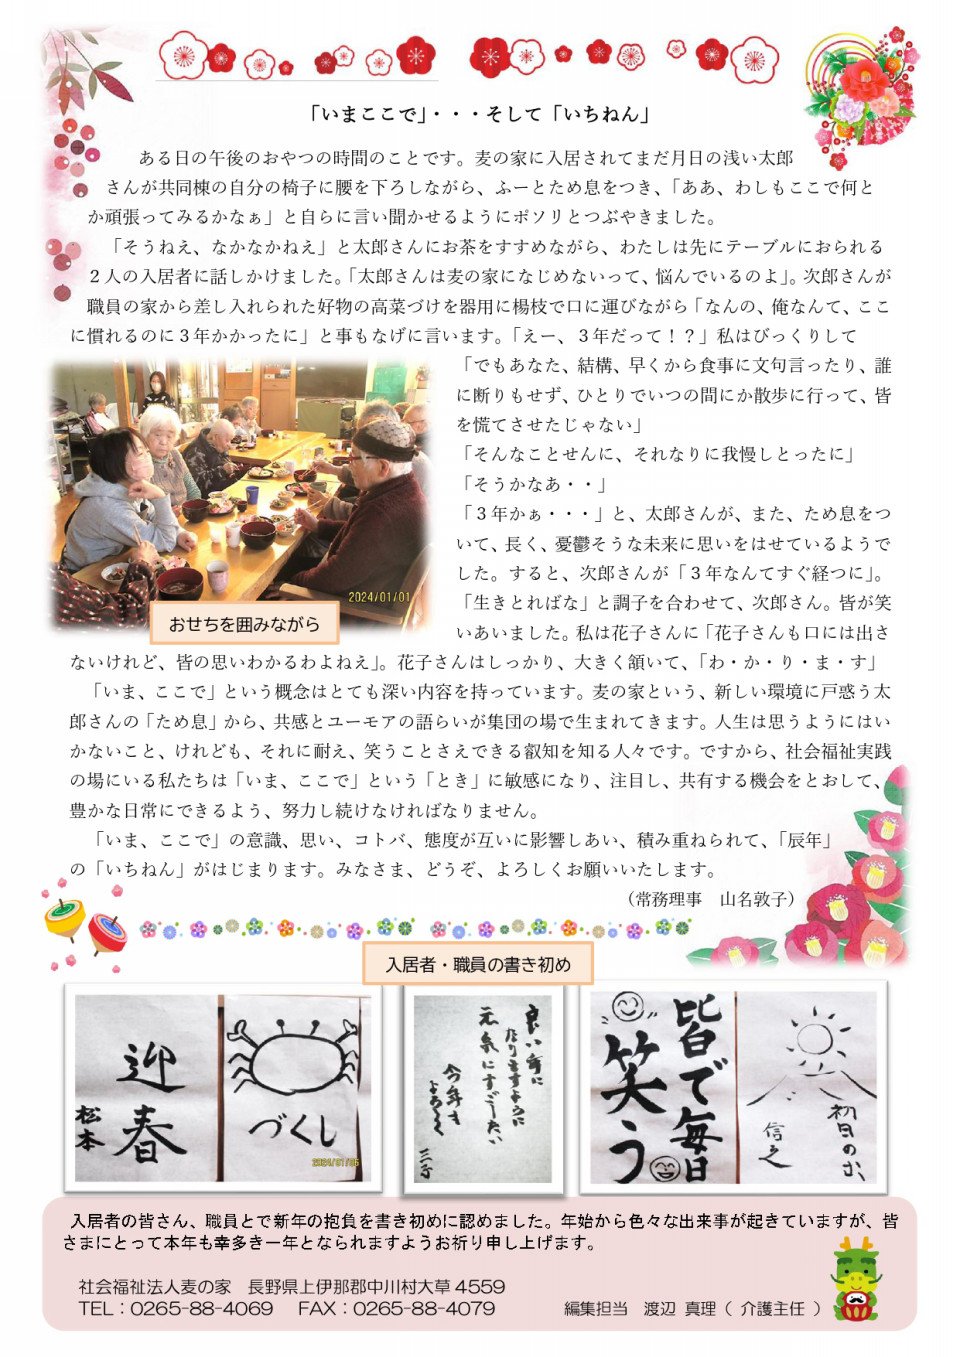 「いまここで」・・・そして「いちねん」
ある日の午後のおやつの時間のことです。麦の家に入居されてまだ月日の浅い太郎
さんが共同棟の自分の椅子に腰を下ろしながら、ふーとため息をつき、「ああ、わしもここで何と
か頑張ってみるかなぁ」と自らに言い聞かせるようにボソリとつぶやきました。
「そうねえ、なかなかねえ」と太郎さんにお茶をすすめながら、わたしは先にテーブルにおられる
２人の入居者に話しかけました。「太郎さんは麦の家になじめないって、悩んでいるのよ」。次郎さんが
職員の家から差し入れられた好物の高菜づけを器用に楊枝で口に運びながら「なんの、俺なんて、ここ
に慣れるのに３年かかったに」と事もなげに言います。「えー、３年だって！？」私はびっくりして
「でもあなた、結構、早くから食事に文句言ったり、誰
に断りもせず、ひとりでいつの間にか散歩に行って、皆
を慌てさせたじゃない」
「そんなことせんに、それなりに我慢しとったに」
「そうかなあ・・」
「３年かぁ・・・」と、太郎さんが、また、ため息をつ
いて、長く、憂鬱そうな未来に思いをはせているようで
した。すると、次郎さんが「３年なんてすぐ経つに」。
「生きとればな」と調子を合わせて、次郎さん。皆が笑
いあいました。私は花子さんに「花子さんも口には出さ
ないけれど、皆の思いわかるわよねえ」。花子さんはしっかり、大きく頷いて、「わ・か・り・ま・す」
2024/01/01
おせちを囲みながら
「いま、ここで」という概念はとても深い内容を持っています。麦の家という、新しい環境に戸惑う太
郎さんの「ため息」から、共感とユーモアの語らいが集団の場で生まれてきます。人生は思うようにはい
かないこと、けれども、それに耐え、笑うことさえできる叡知を知る人々です。ですから、社会福祉実践
の場にいる私たちは「いま、ここで」という「とき」に敏感になり、注目し、共有する機会をとおして、
豊かな日常にできるよう、努力し続けなければなりません。
「いま、ここで」の意識、思い、コトバ、態度が互いに影響しあい、積み重ねられて、「辰年」
の「いちねん」がはじまります。みなさま、どうぞ、よろしくお願いいたします。
（常務理事　山名敦子）
入居者・職員の書き初め
迎春
松本
づくし
2024/01/06
良い年に
なりますように
元気にすごしたい
今年も
よろしく
皆で毎日
笑う
初日の出
信之
入居者の皆さん、職員とで新年の抱負を書き初めに認めました。年始から色々な出来事が起きていますが、皆
さまにとって本年も幸多き一年となられますようお祈り申し上げます。
社会福祉法人麦の家　長野県上伊那郡中川村大草 4559
TEL：0265-88-4069　FAX：0265-88-4079　編集担当　渡辺 真理（ 介護主任 ）